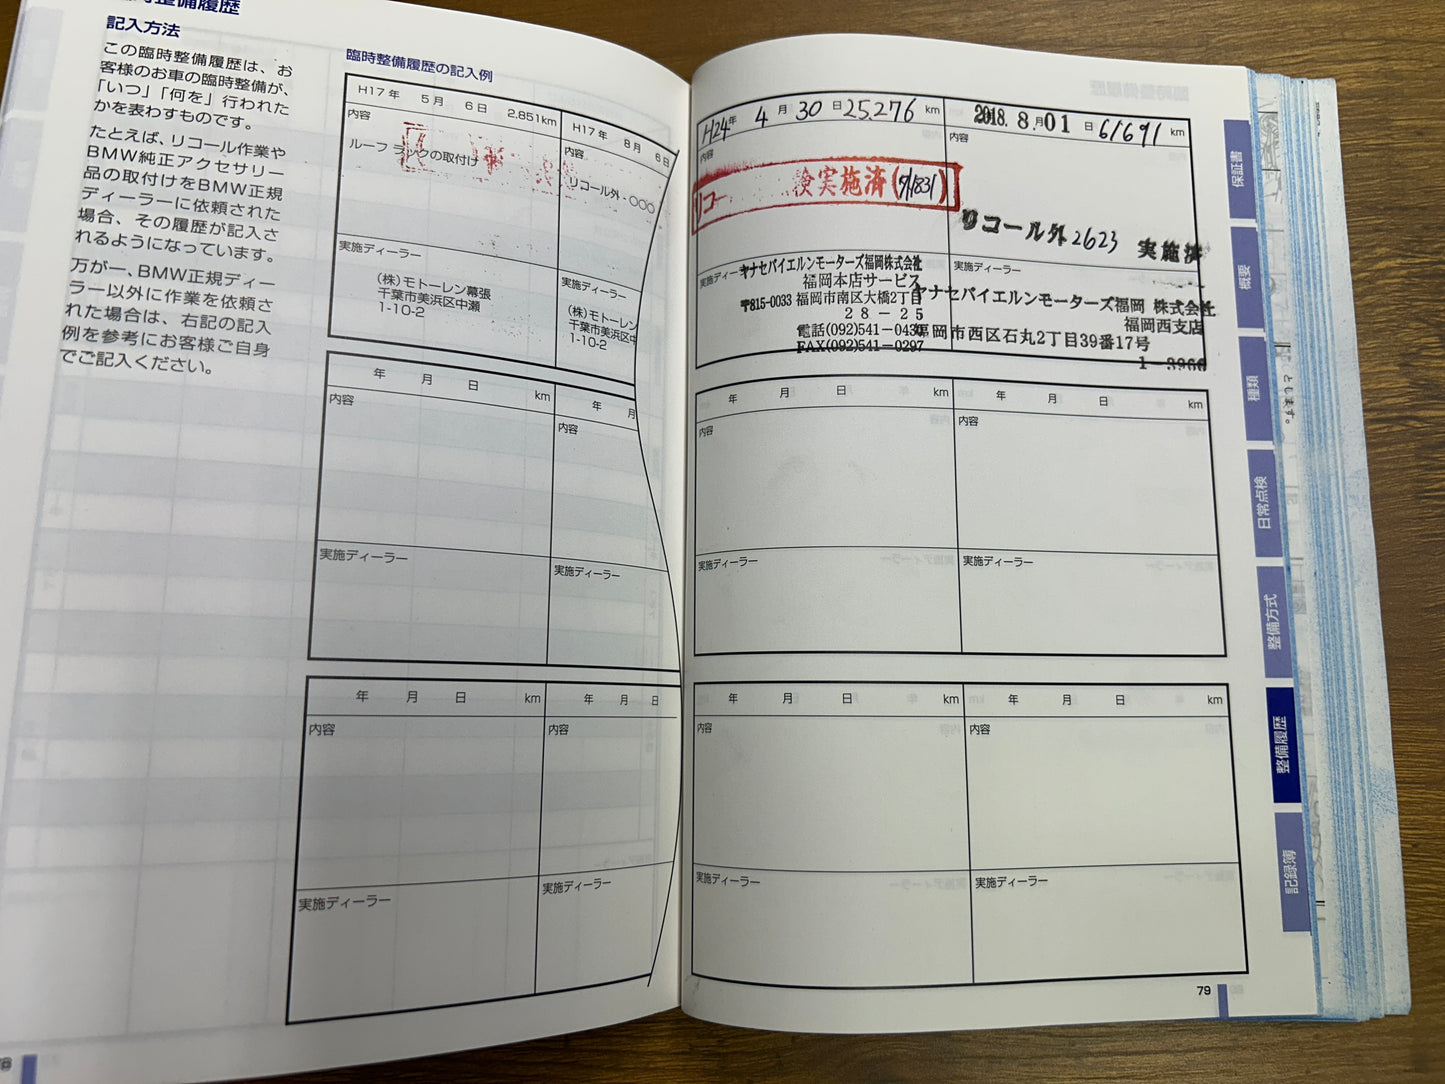 整備履歴
記入方法
この臨時整備履歴は、お
客様のお車の臨時整備が、
「いつ」「何を」行われた
かを表わすものです。
たとえば、リコール作業や
BMW純正アクセサリー
品の取付けをBMW正規
ディーラーに依頼された
場合、その履歴が記入さ
れるようになっています。
万が一、BMW正規ディー
ラー以外に作業を依頼さ
れた場合は、右記の記入
例を参考にお客様ご自身
でご記入ください。
臨時整備履歴の記入例
H17年 5月 6日 2,851km
内容
ルーフ ラックの取付け
実施ディーラー
(株)モトーレン幕張
千葉市美浜区中瀬
1-10-2
H17年 8月 6日
内容
リコール外-○○○
実施ディーラー
(株)モトーレン
千葉市美浜区中
1-10-2
年 月 日 km
内容
実施ディーラー
年 月
内容
実施ディーラー
年 月 日 km
内容
実施ディーラー
年 月 日
内容
実施ディーラー
H24年 4月 30日 25,276 km
内容
リコー 検実施済(71831)
実施ディー
ヤナセバイエルンモーターズ福岡株式会社
福岡本店サービス
〒815-0033 福岡市南区大橋2丁目
28-25
電話(092)541-0430
FAX(092)541-0297
2018. 8月01日 61691 km
内容
リコール外2623 実施済
実施ディーラー
ヤナセバイエルンモーターズ福岡 株式会社
福岡西支店
福岡市西区石丸2丁目39番17号
1-3966
年 月 日 km
内容
実施ディーラー
年 月 日 km
内容
実施ディーラー
年 月 日 km
内容
実施ディーラー
年 月 日 km
内容
実施ディーラー
79
保証書
概要
種類
日常点検
整備方式
整備履歴
記録簿
とします。